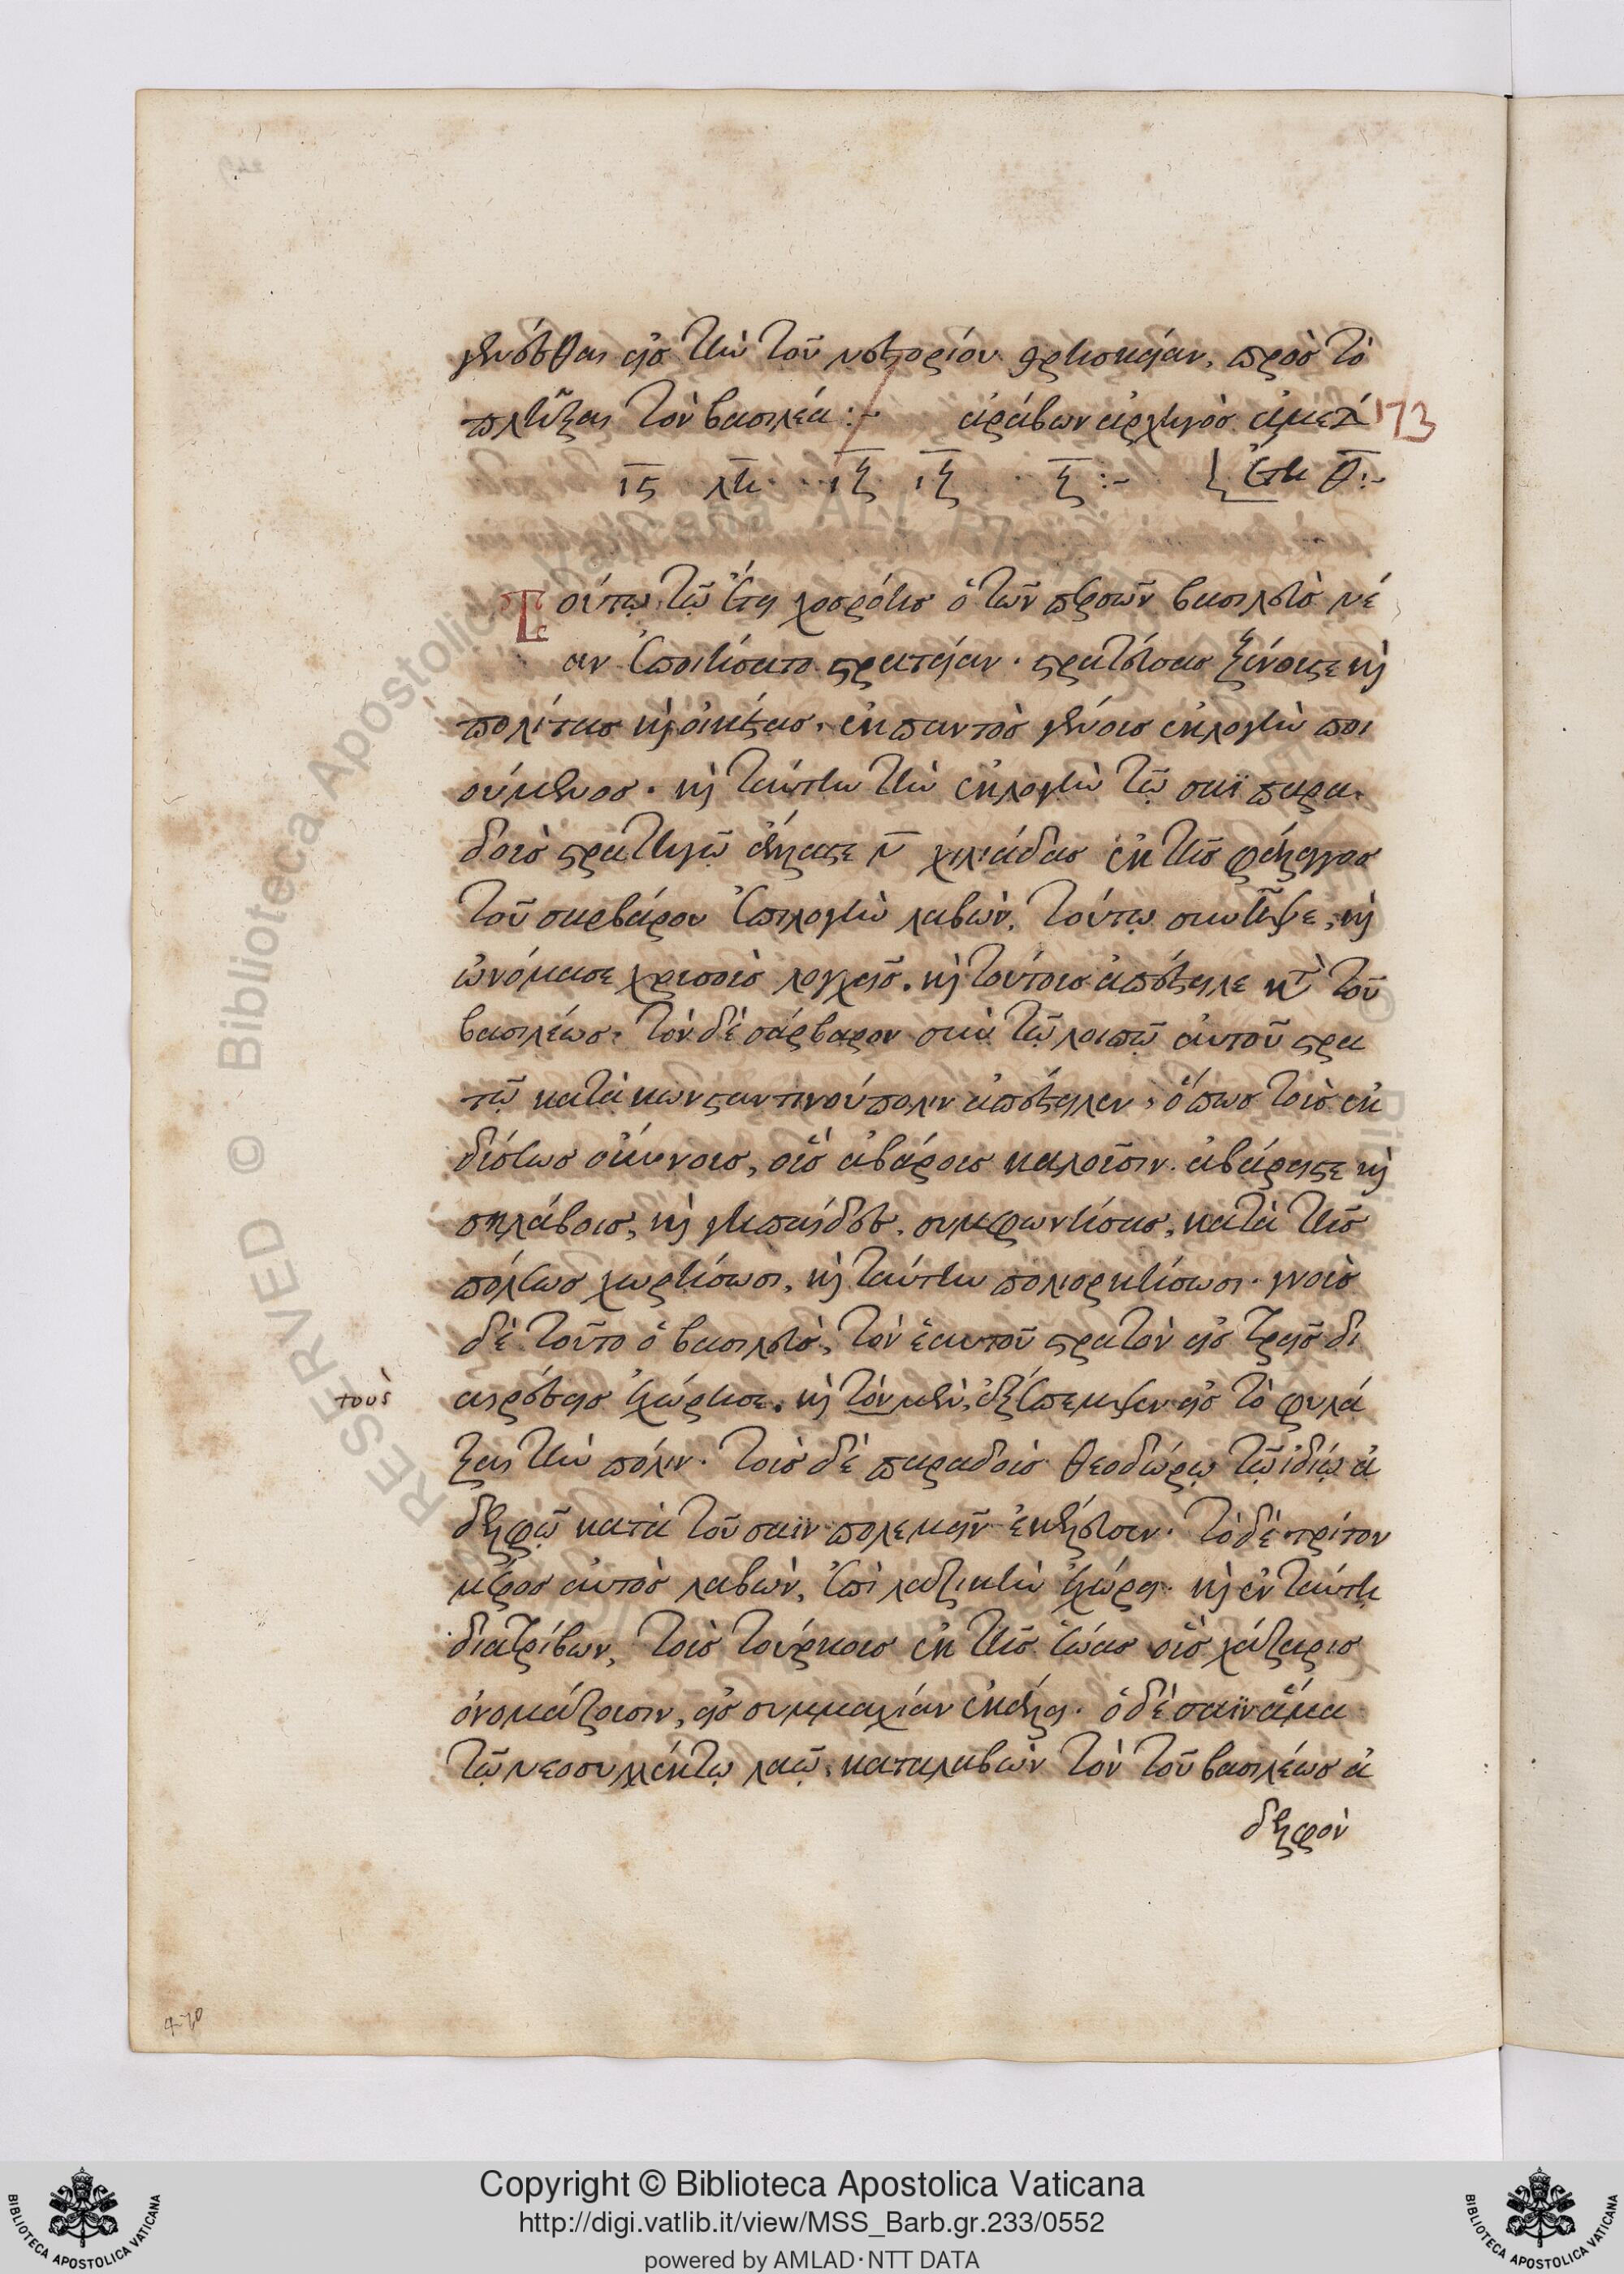 γενέσθαι εἰς τὴν τοῦ νεστορίου θρησκείαν, πρὸς τὸ
πλῆξαι τὸν βασιλέα :~ ἀράβων ἀρχηγὸς
173
ις λη ιζ ιζ ζ :~ ἔτη θ :~
Τούτῳ τῷ ἔτει χοσρόης ὁ τῶν περσῶν βασιλεὺς νέ
αν ἐποιήσατο στρατείαν. στρατεύσας ξένους τε καὶ
πολίτας καὶ οἰκέτας, ἐκ παντὸς γένους ἐκλογὴν ποι
ούμενος. καὶ ταύτην τὴν ἐκλογὴν τῷ σαῒ παρα
δοὺς στρατηγῷ ἄλλας τε ν χιλιάδας ἐκ τῆς φάλαγγος
τοῦ σαρβάρου ἐπιλογὴν λαβὼν, τούτῳ συνῆψε, καὶ
ὠνόμασε χρυσοὺς λογχεῖς. καὶ τούτους ἀπέστειλε κατὰ τοῦ
βασιλέως. τὸν δὲ σάρβαρον σὺν τῷ λοιπῷ αὐτοῦ στρα
τῷ κατὰ κωνσταντινούπολιν ἀπέστειλεν, ὅπως τοὺς ἐκ
δύσεως οὔννους, οὓς ἀβάρους καλοῦσιν. ἀβάρης τε καὶ
σκλάβους, καὶ γηπαίδες. συμφωνήσας, κατὰ τῆς
πόλεως χωρήσωσι, καὶ ταύτην πολιορκήσωσι. γνοὺς
δὲ τοῦτο ὁ βασιλεὺς, τὸν ἑαυτοῦ στρατὸν εἰς τρεῖς δι
τοὺς
αιρέσεις ἐχώρησε. καὶ τὸν μὲν, ἐξέπεμψεν εἰς τὸ φυλά
ξαι τὴν πόλιν. τοὺς δὲ παραδοὺς θεοδώρῳ τῷ ἰδίῳ ἀ
δελφῷ κατὰ τοῦ σαῒν πολεμεῖν ἐκέλευσεν. τὸ δὲ τρίτον
μέρος αὐτὸς λαβὼν, ἐπὶ λαζικὴν ἐχώρει. καὶ ἐν ταύτῃ
διατρίβων, τοὺς τούρκους ἐκ τῆς ἑώας οὓς χάζαρις
ὀνομάζουσιν, εἰς συμμαχίαν ἐκάλει. ὁ δὲ σαῒν ἅμα
τῷ νεοσυλλέκτῳ λαῷ. καταλαβὼν τὸν τοῦ βασιλέως ἀ
δελφὸν
RESERVED © Biblioteca Apostolica
Copyright © Biblioteca Apostolica Vaticana
http://digi.vatlib.it/view/MSS_Barb.gr.233/0552
powered by AMLAD·NTT DATA
BIBLIOTECA APOSTOLICA VATICANA
BIBLIOTECA APOSTOLICA VATICANA